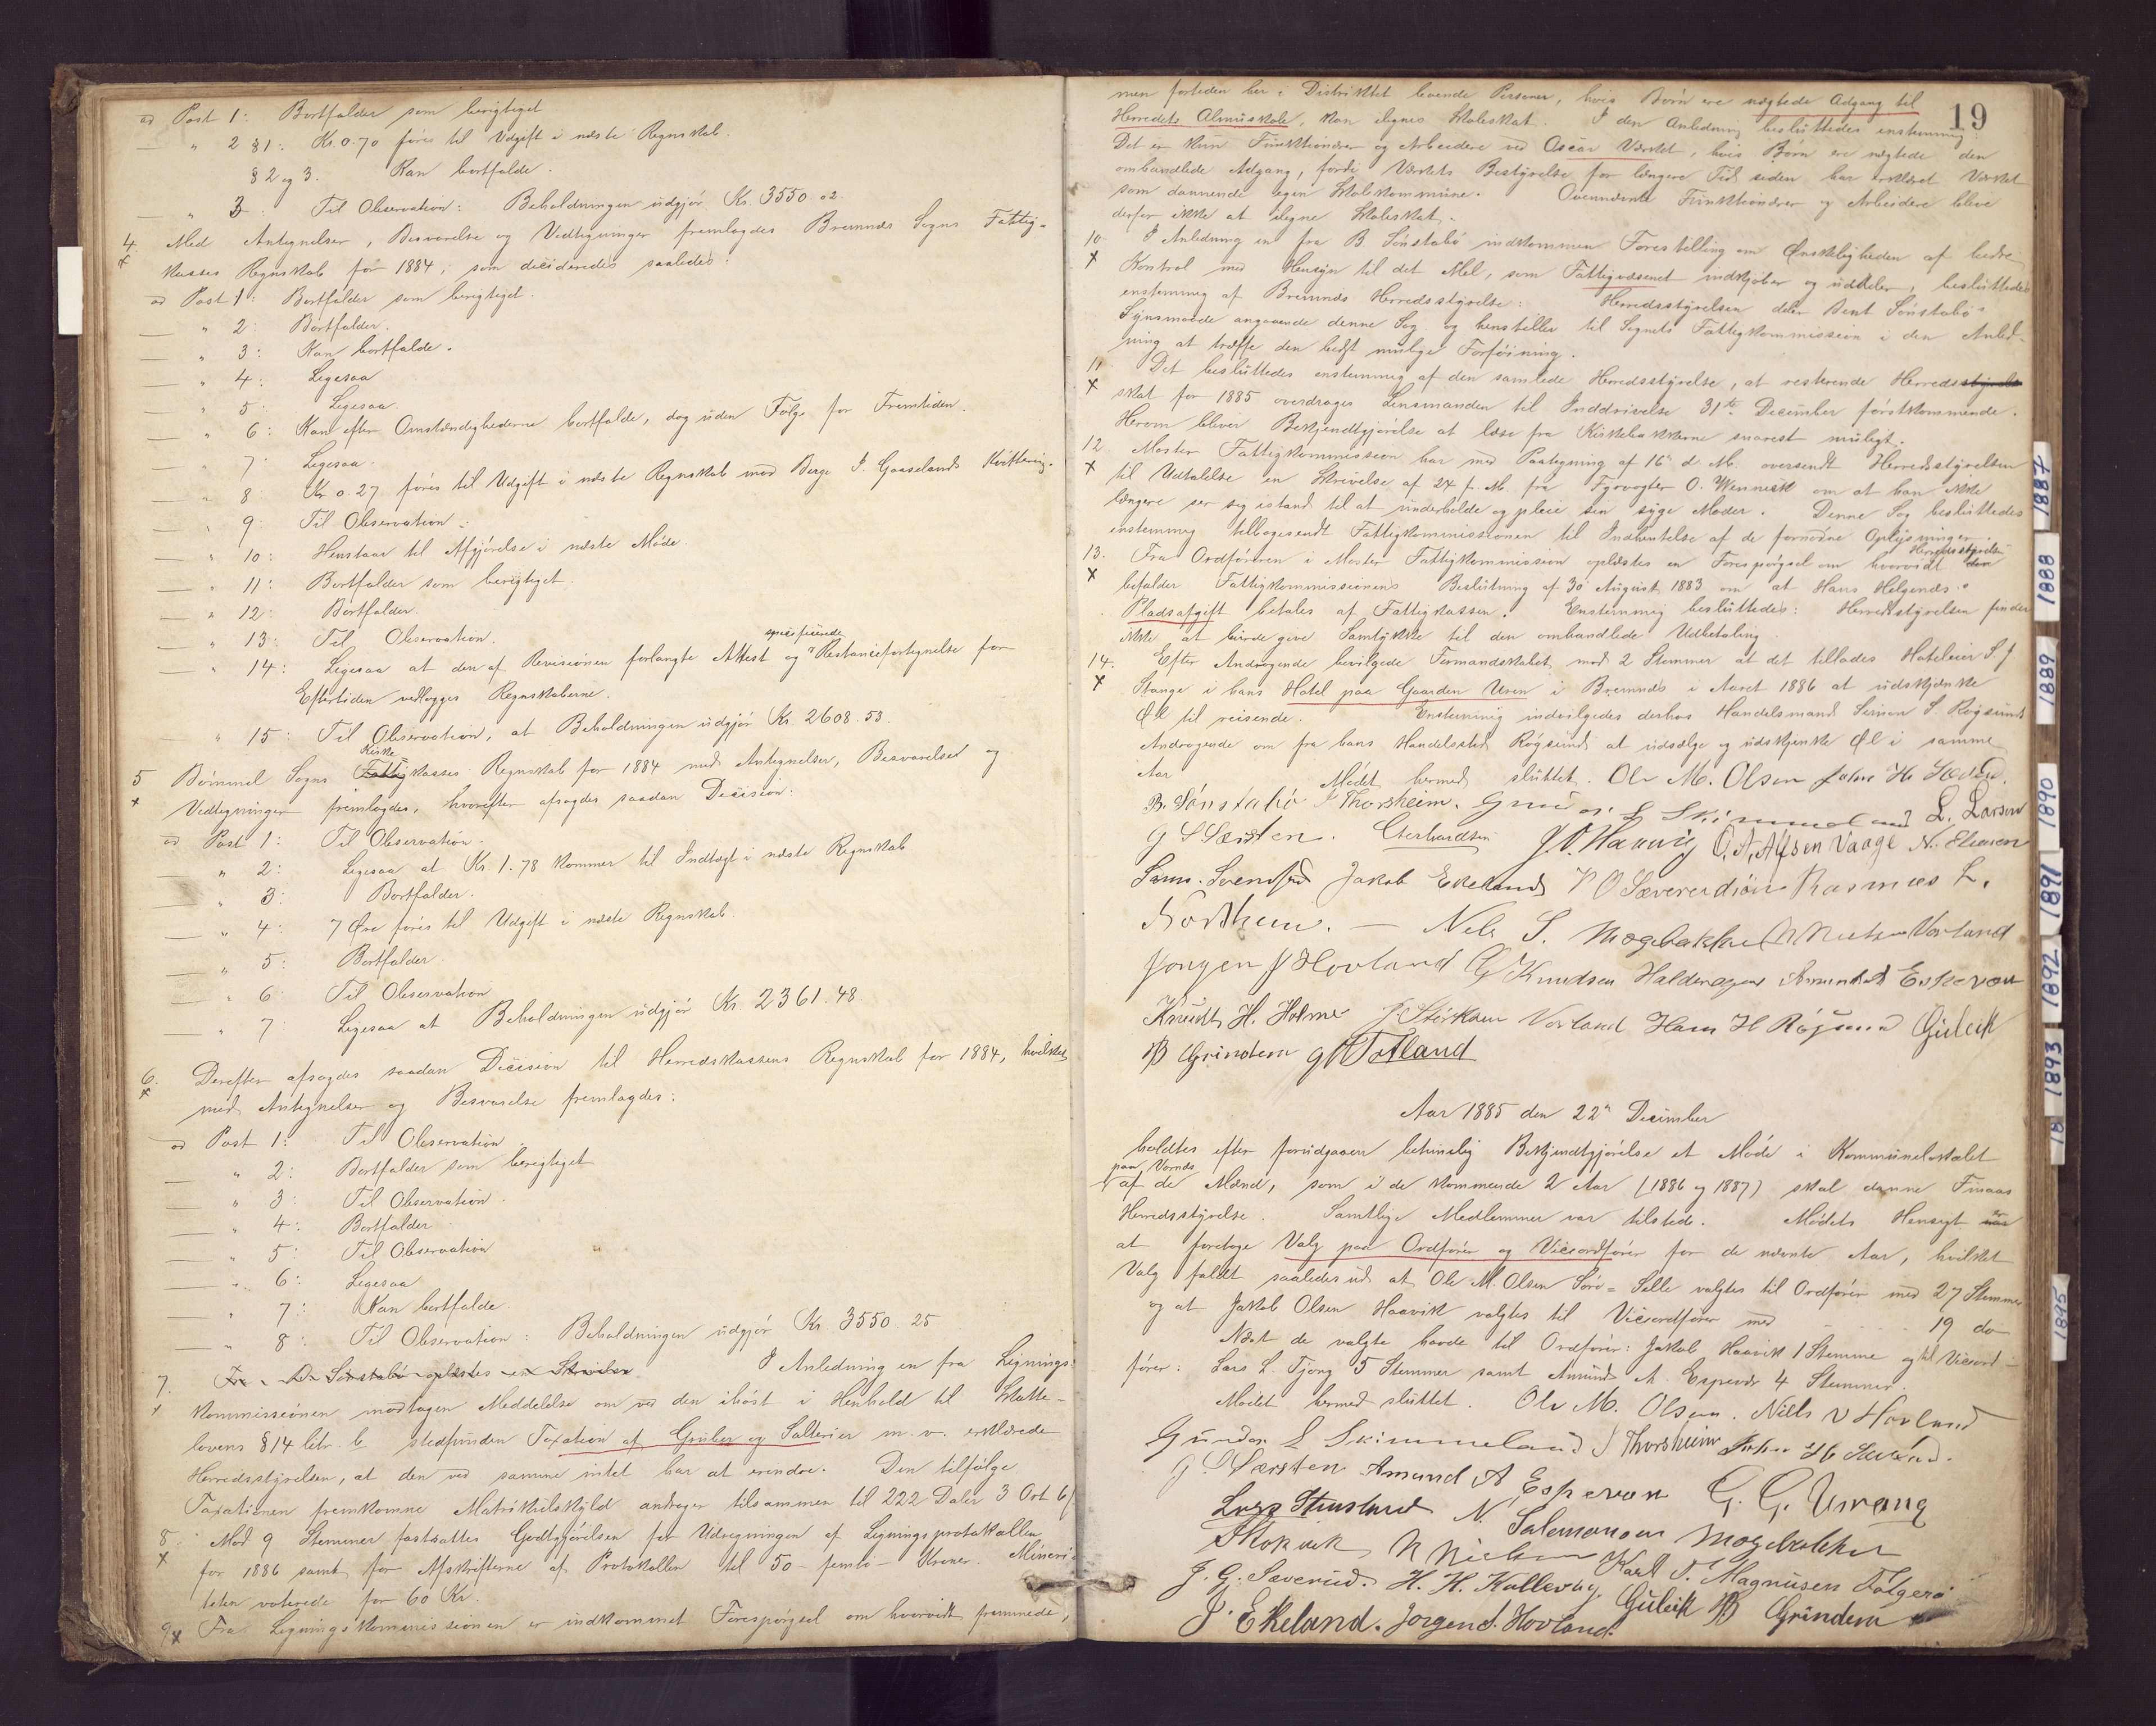 ad Post 1: Bortfalder som berigtiget
— " 2 § 1: Kr. 0.70 föres til Udgift i næste Regnskab.
§ 2 og 3. Kan bortfalde.
— " 3. Til Observation: Beholdningen udgjör Kr. 3550.02.
4. Med Antegnelser, Besvarelse og Vedtegninger fremlagdes Bremnæs Sogns Fattig-
x kasses Regnskab for 1884, som decideredes saaledes:
ad Post 1: Bortfalder som berigtiget.
— " 2: Bortfalder.
— " 3: Kan bortfalde.
— " 4: Ligesaa
— " 5: Ligesaa.
— " 6: Kan efter Omstændighederne bortfalde, dog uden Fölge for Fremtiden.
— " 7: Ligesaa.
— " 8: Kr 0.27 föres til Udgift i næste Regnskab mod Berge J. Gaaselands Kvittering.
— " 9: Til Observation.
— " 10: Henstaar til Afgjörelse i næste Möde.
— " 11: Bortfalder som berigtiget.
— " 12: Bortfalder.
— " 13: Til Observation.
specifiserede
— " 14: Ligesaa at den af Revisionen forlangte Attest og " Restancefortegnelse for
Eftertiden vedlægges Regnskaberne.
— " 15: Til Observation, at Beholdningen udgjör Kr. 2608.53.
Kirke
5 Bömmel Sogns Fattigkasses Regnskab for 1884 med Antegnelser, Besvarelser og
x Vedtegninger fremlagdes, hvorefter afsagdes saadan Decision:
ad Post 1: Til Observation.
— " 2: Ligesaa at Kr. 1.78 kommer til Indtægt i næste Regnskab
— " 3: Bortfalder.
— " 4: 7 Öre föres til Udgift i næste Regnskab.
— " 5: Bortfalder
— " 6: Til Observation
— " 7: Ligesaa at Beholdningen udgjör Kr. 2361.48.
6. Derefter afsagdes saadan Decision til Herredskassens Regnskab for 1884, hvilket
x med Antegnelser og Besvarelse fremlagdes:
ad Post 1: Til Observation.
" 2: Bortfalder som berigtiget
— " 3: Til Observation.
— " 4: Bortfalder
— " 5: Til Observation
— " 6: Ligesaa
— " 7: Kan bortfalde.
— " 8: Til Observation: Beholdningen udgjör Kr. 3550.25
7. Fra B. Sönstabö oplæstes en Skrivelse I Anledning en fra Lignings-
x kommissionen modtagen Meddelelse om ved den ihöst i Henhold til Skatte-
lovens § 14 litr. b stedfunden Taxation af Gruber og Salterier m. v. erklærede
Herredsstyrelsen, at den ved samme intet har at erindre. Den tilfölge
Taxationen fremkomne Matrikulskyld andrager tilsammen til 222 Daler 3 Ort 6/
8: Mod 9 Stemmer fastsattes Godtgjörelsen for Udregningen af Ligningsprotokollen
x for 1886 samt for Afskrifterne af Protokollen til 50 - femti - Kroner. Minori-
teten voterede for 60 Kr.
9 x Fra Ligningskommissionen er indkommet Forespörgsel om hvorvidt fremmede,
19
men fortiden her i Distriktet boende Personer, hvis Börn ere nægtede Adgang til
Herredets Almuskole, kan ilignes Skoleskat. I den Anledning besluttedes enstemmig:
Det er kun Funktionærer og Arbeidere ved Oscar Værket, hvis Börn ere nægtede den
omhandlede Adgang, fordi Værkets Bestyrelse for længere Tid siden har erklæret Værket
som dannende egen Skolekommune. Ovennævnte Funktionærer og Arbeidere bleve
derfor ikke at iligne Skoleskat.
10. I Anledning en fra B Sönstabö indkommen Forestilling om Önskeligheden af bedre
x Kontrol med Hensyn til det Mel, som Fattigvæsenet indkjöber og uddeler, besluttedes
enstemmig af Bremnæs Herredsstyrelse: Herredsstyrelsen deler Bent Sönstabö's
Synsmaade angaaende denne Sag og henstiller til Sognets Fattigkommission i den Anled-
ning at træffe den bedst mulige Forföining.
11 Det besluttedes enstemmig af den samlede Herredsstyrelse, at resterende Herredsstyrelse
x skat for 1885 overdrages Lensmanden til Inddrivelse 31te December förstkommende.
Herom bliver Bekjendtgjörelse at læse fra Kirkebakkerne snarest muligt.
12 Moster Fattigkommission har med Paategning af 16de d. M. oversendt Herredsstyrelsen
x til Udtalelse en Skrivelse af 24 f. M. fra Fyrvogter O. Wennevik om at han ikke
længere ser sig istand til at underholde og pleie sin syge Moder. Denne Sag besluttedes
enstemmig tilbagesendt Fattigkommissionen til Indhentelse af de fornödne Oplysninger.
Herredsstyrelsen
13. Fra Ordföreren i Moster Fattigkommission oplæstes en Forespörgsel om hvorvidt den
x bifalder Fattigkommissionens Beslutning af 30 August 1883 om at Hans Helgenæs's
Pladsafgift betales af Fattigkassen. Enstemmig besluttedes: Herredsstyrelsen finder
ikke at burde give Samtykke til den omhandlede Udbetaling.
14. Efter Andragende bevilgede Formandskabet mod 2 Stemmer at det tillades Hoteleier S. J.
x Stange i hans Hotel paa Gaarden Uren i Bremnæs i Aaret 1886 at udskjænke
Öl til reisende. Enstemmig indvilgedes derhos Handelsmand Simon S. Rögsunds
Andragende om fra hans Handelssted Rögsund at udsælge og udskjænke Öl i samme
Aar Mödet hermed sluttet. Ole M. Olsen John H.
B. Sönstabö J Thorsheim. Gunder L Skimmeland L. Larsen
G S Særsten. Gerhardsen J. O. Haavig O. A. Alfsen Vaage N. Eliasen
Sams. Svendsen Jakob Ekeland Rasmus L.
Nordtun. — Nils S. Mogebakken N Nielsen Vorland
Jörgen J Hovland G Knudsen Haldoragen Amund A Espevær
Knudt H. Holme J. Störksen Vorland Hans H Rögsund Guleik
B Grindem G Totland
Aar 1885 den 22de December
holdtes efter forudgaaen betimelig Bekjendtgjörelse et Möde i Kommunelokalet
paa Vornæs
af de Mænd, som i de kommende 2 Aar (1886 og 1887) skal danne Finaas
Herredsstyrelse. Samtlige Medlemmer var tilstede. Mödets Hensigt var
at foretage Valg paa Ordförer og Viceordförer for de nævnte Aar, hvilket
Valg faldt saaledes ud at Ole M. Olsen Söre-Selle valgtes til Ordförer med 27 Stemmer
og at Jakob Olsen Haavik valgtes til Viceordförer med 19 do
Næst de valgte havde til Ordförer: Jakob Haavik 1 Stemme og til Viceord-
förer: Lars L. Tjong 5 Stemmer samt Amund A. Espevær 4 Stemmer.
Mödet hermed sluttet. Ole M. Olsen. Nills N Hovland
Gunder L Skimmeland J Thorsheim John H
G. S Særsten Amund A Espevær G. G. Urvang
Lars Stensland N. Salemonsen Mogebakken
Stokvik N Nielsen Karl T. Magnusen Folgerö
J. G. Sæverud. H. H. Kallevåg Guleik B Grindem
J. Ekeland. Jorgen J. Hovland.
1887
1888
1889
1890
1891
1892
1893
18
1895